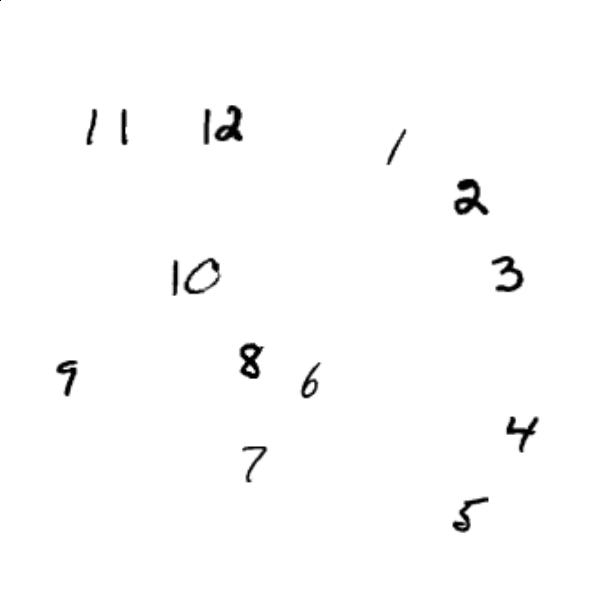 11 12 1
2
10 3
9 8 6
4
7
5